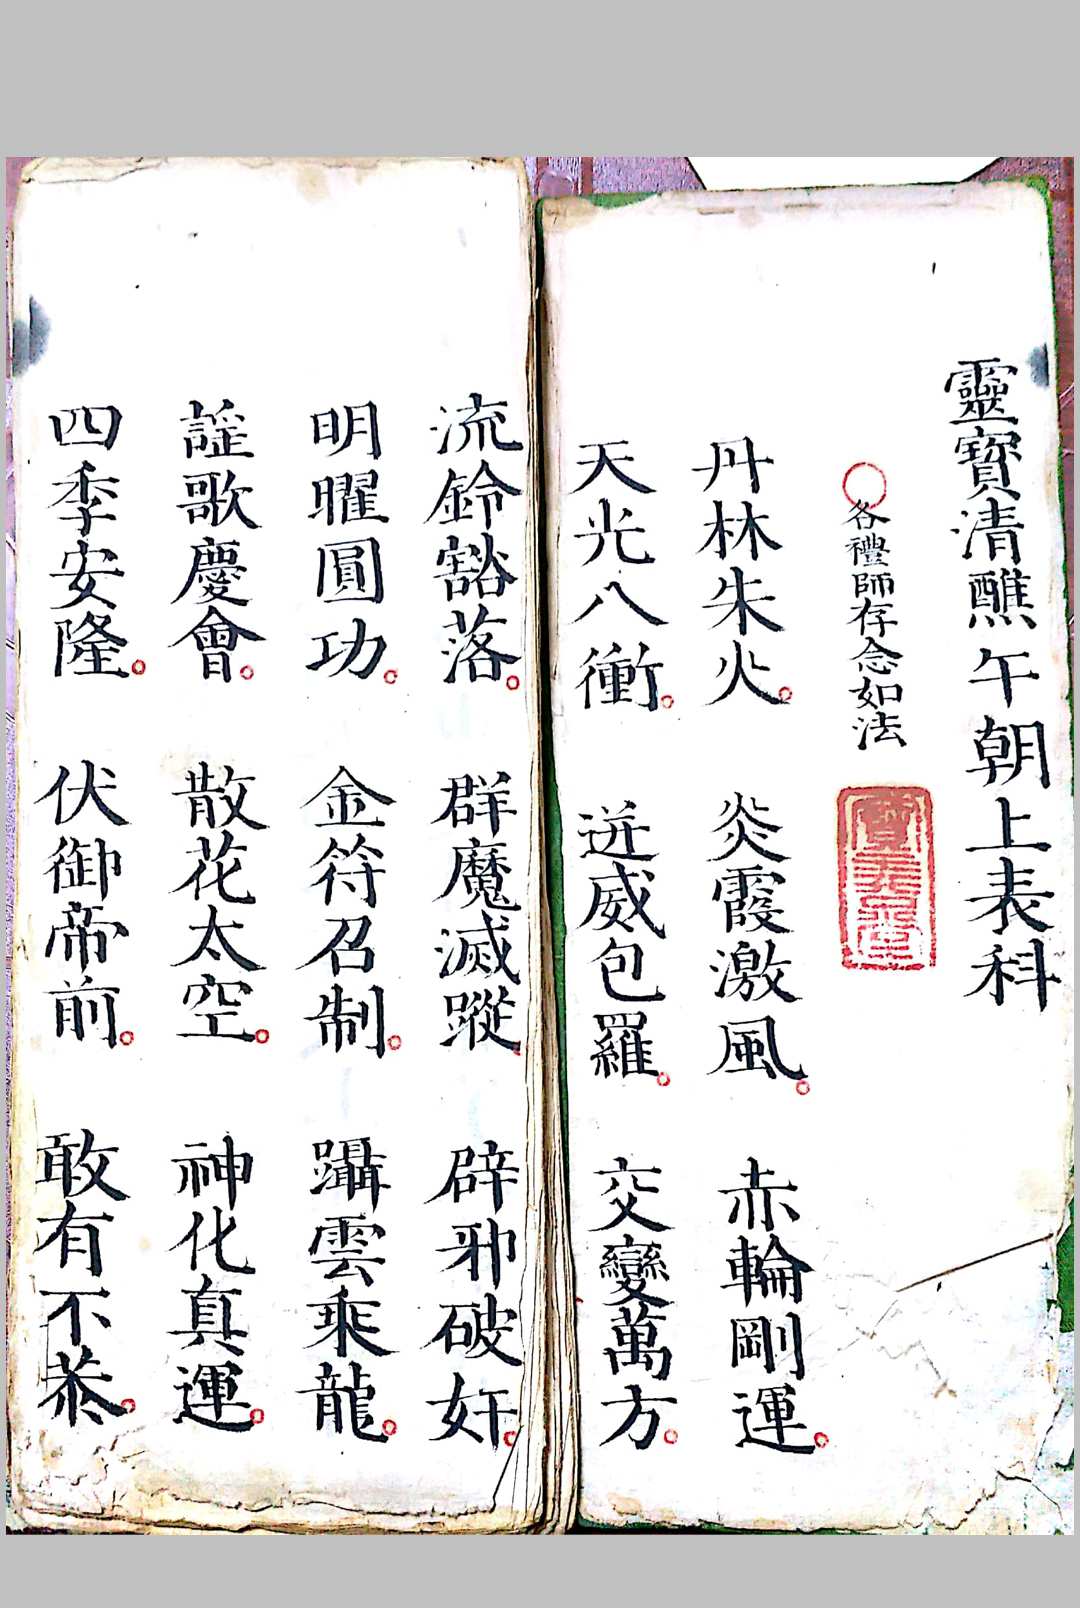 靈寶清醮午朝上表科
各禮師存念如法
丹林朱火。炎霞激風。赤輪剛運。
天光八衝。迸威包羅。交變萬方。
流鈴豁落。群魔滅蹤。辟邪破奸。
明曜圓功。金符召制。躡雲乘龍。
謠歌慶會。散花太空。神化真運。
四季安隆。伏御帝前。敢有不恭。